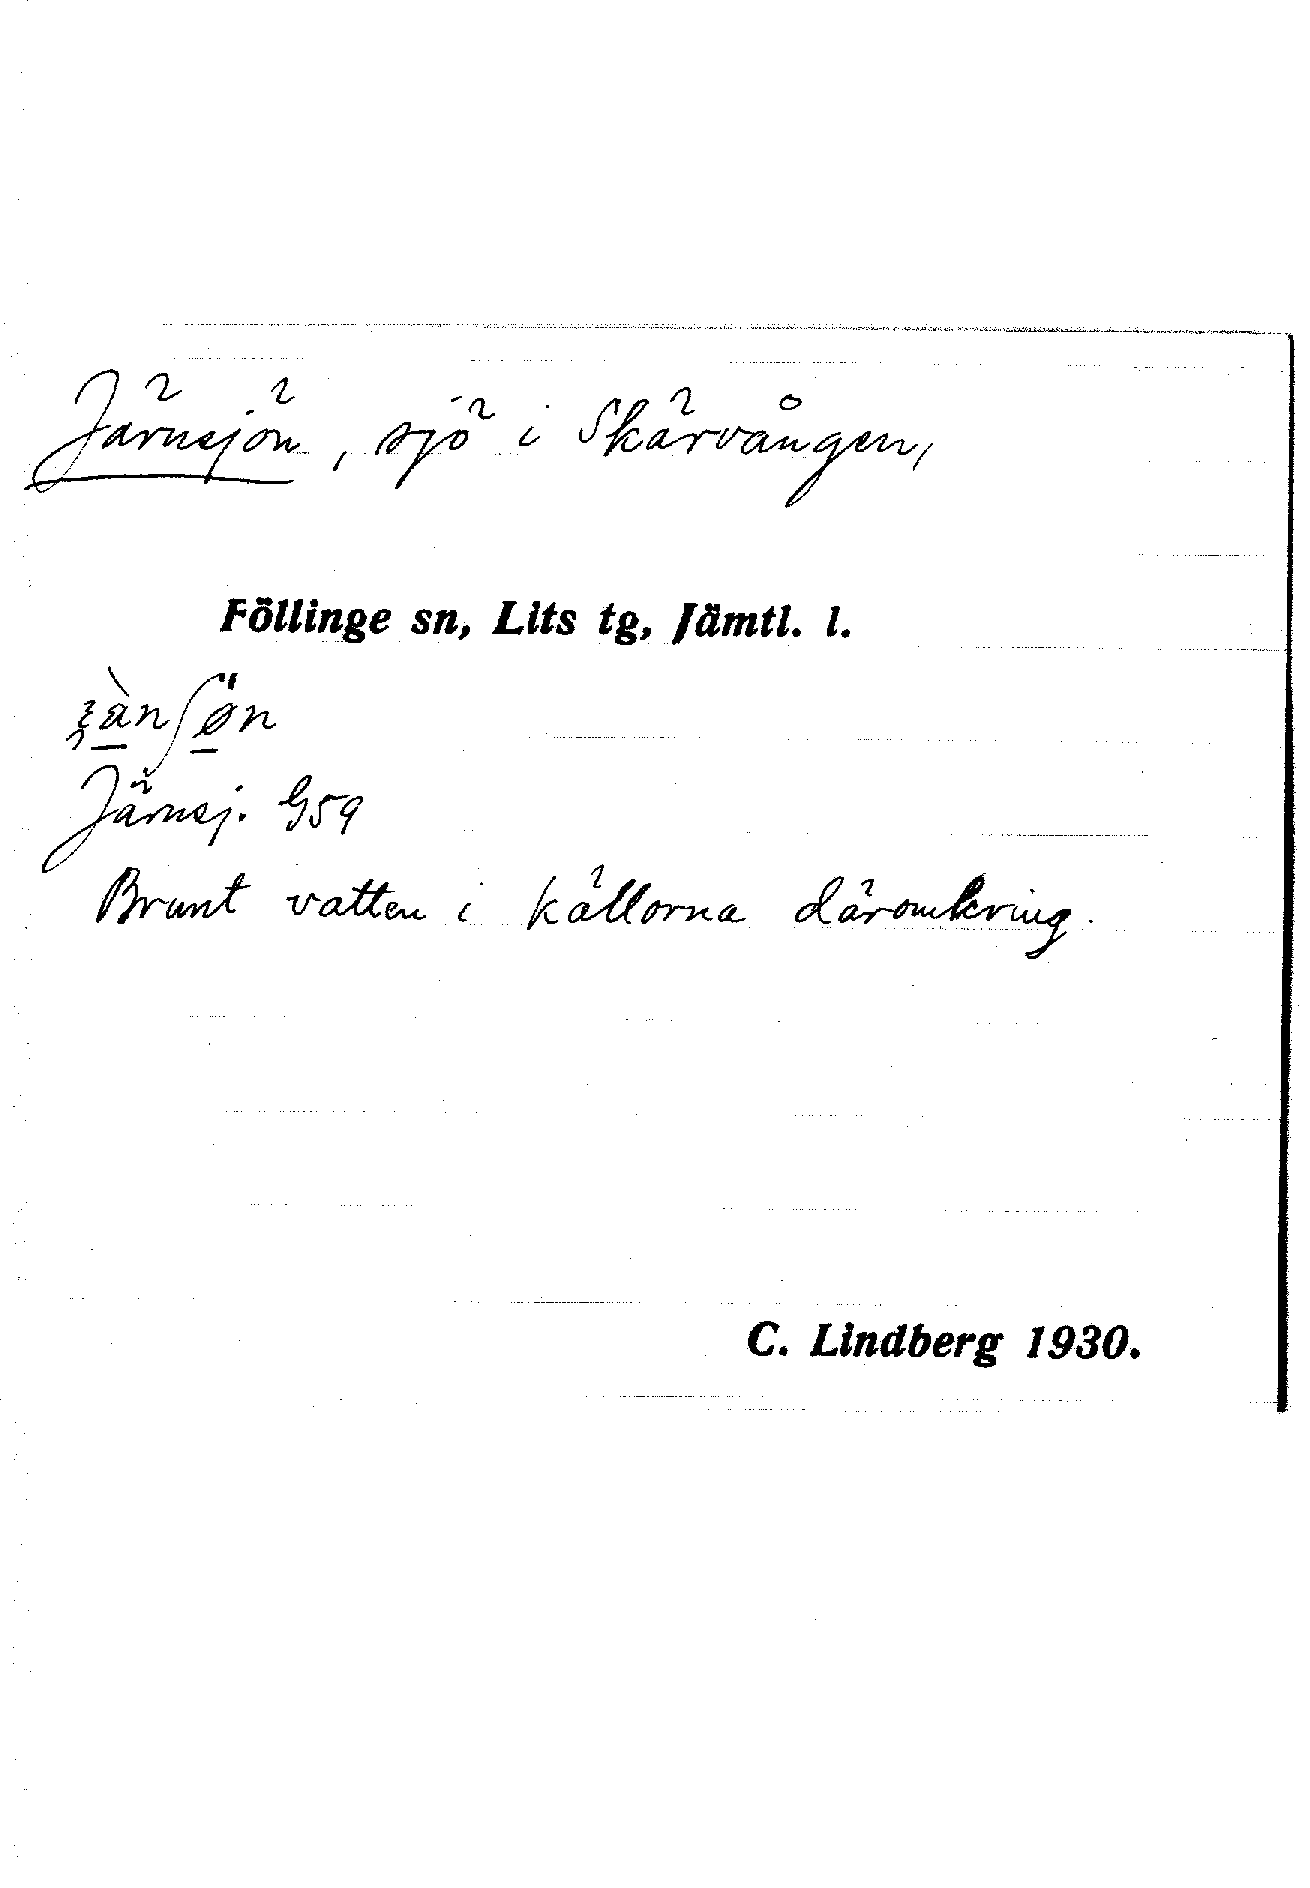 Järnsjön, sjö i Skärvången,
Föllinge sn, Lits tg, Jämtl. l.
Järnsj. G59
Brunt vatten i källorna däromkring.
C. Lindberg 1930.